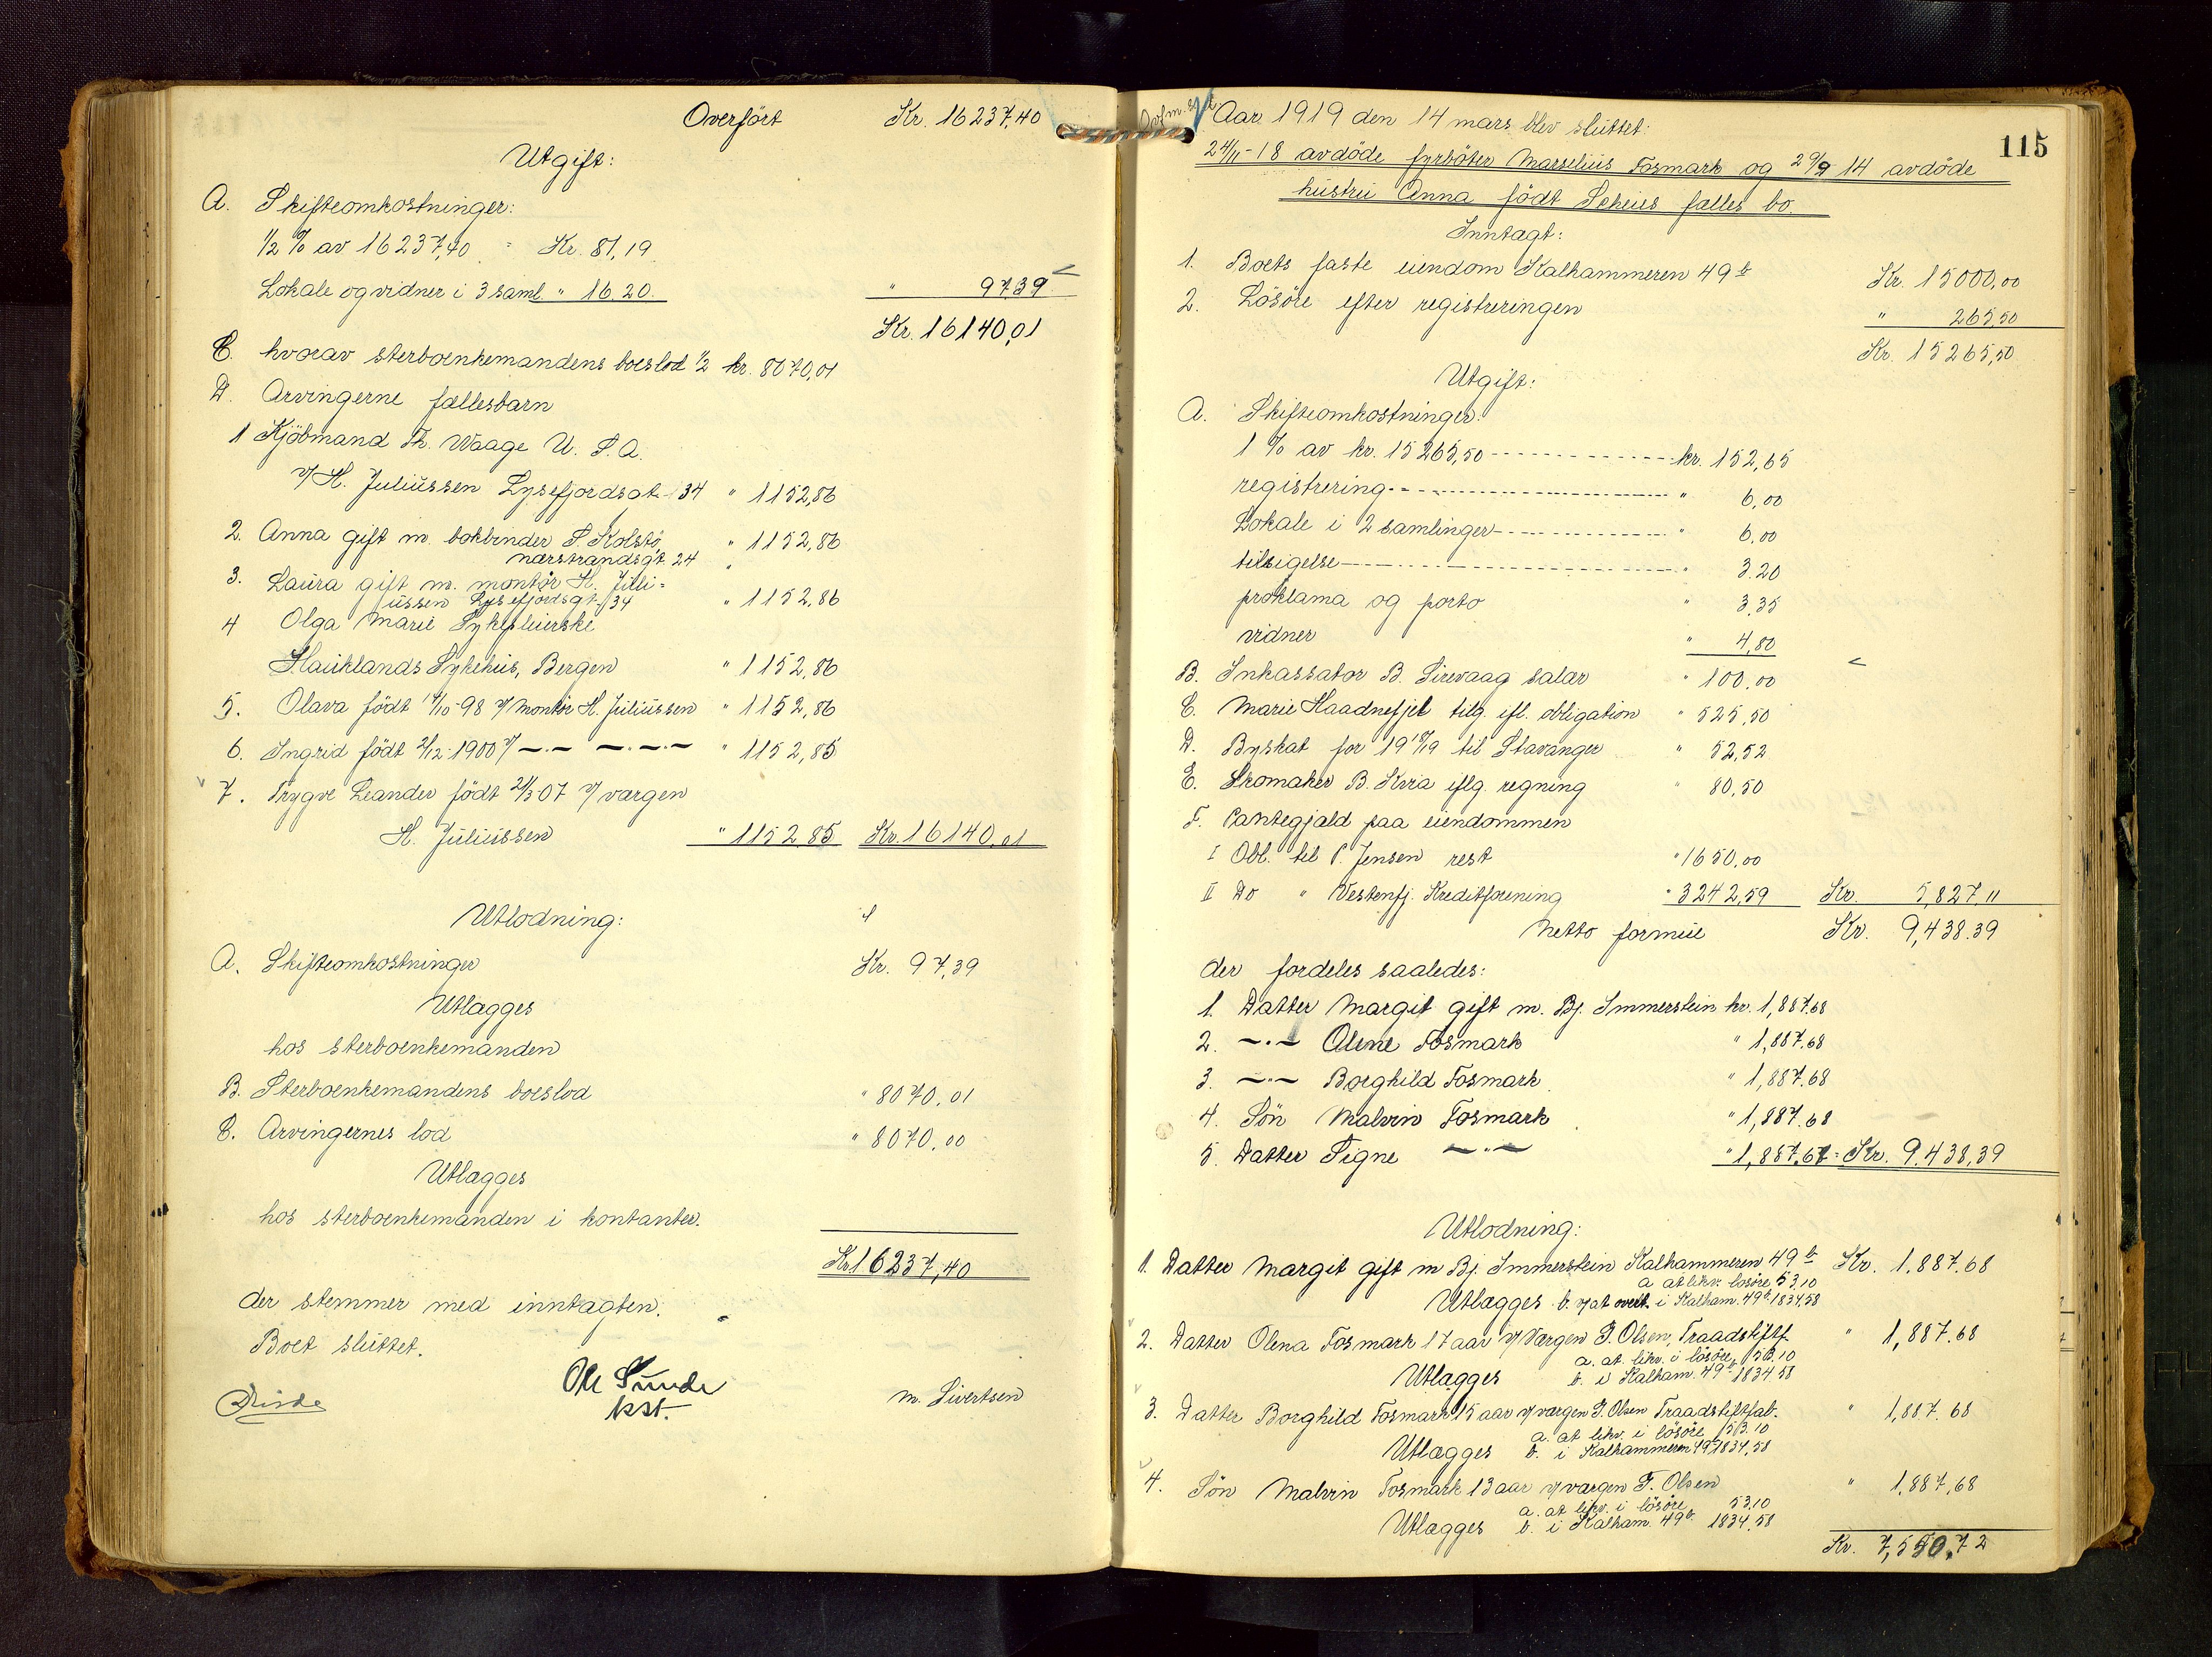 Overført Kr. 16237,40
Utgift:
A. Skifteomkostninger:
1/2 % av 16237,40 = Kr. 81,19
Lokale og vidner i 3 saml. " 16.20 " 97.39
Kr. 16140,01
C. hvorav sterboenkemandens boeslod 1/2 kr. 8070,01
D. Arvingerne fællesbarn
1 Kjöbmand Th. Waage U. S. A.
v/ H. Juliussen Lysefjordsgt. 34 " 1152,86
2. Anna gift m. bokbinder S. Kolstö " 1152,86
nærstrandsgt. 24 "
3. Laura gift m. montör H. Juli=
ussen Lysefjordsgt. 34 " 1152,86
4 Olga Marie Sykepleierske
Hauklands Sykehus, Bergen " 1152,86
5. Olava födt 14/10-98 v/ montör H. Juliussen " 1152,86
6. Ingrid födt 2/12-1900 v/ —·— —·—·— " 1152,85
7. Trygve Leander födt 21/3 07 v/værgen
H. Juliussen " 1152.85 Kr. 16140.01
Utlodning:
A. Skifteomkostninger Kr. 97,39
Utlægges
hos sterboenkemanden
B. Sterboenkemandens boeslod " 8070.01
C. Arvingernes lod " 8070.00
Utlægges
hos sterboenkemanden i kontanter.
Kr 16237,40
der stemmer med inntægten.
Boet sluttet.
Ole Sunde
kst.
M. Sivertsen
115
Aar 1919 den 14 mars blev sluttet:
24/11-18 avdöde fyrböter Marselius Fosmark og 29/9 14 avdöde
hustru Anna födt Scheies fælles bo.
Inntægt:
1. Boets faste eiendom Kalhammeren 49 b Kr. 15000,00
2. Lösöre efter registreringen " 265,50
Kr. 15265,50
Utgift:
A. Skifteomkostninger:
1 % av kr. 15265,50 kr. 152,65
registrering " 6,00
Lokale i 2 samlinger " 6,00
tilsigelse " 3.20
proklama og porto " 3.35
vidner " 4,80
B. Inkassator B. Sirevaag salær " 100.00
C. Marie Haadnefjel tilg. efl. obligation " 525,50
D. Byskat for 1918/19 til Stavanger " 52,52
E. Skomaker B. Kvia eflg. regning " 80,50
F. Pantegjæld paa eiendommen
I Obl. til P. Jensen rest " 1650,00
II Do " Vestenfj. Kreditforening " 3242,59 Kr. 5,827,11
Netto formue Kr. 9,438.39
der fordeles saaledes:
1. Datter Margit gift m. Bj. Immerstein kr. 1,887.68
2. —·— Olene Fosmark " 1,887.68
3. —·— Borghild Fosmark. " 1,887.68
4. Sön Malvin Fosmark " 1,887.68
5. Datter Signe —"— " 1,887.67 = Kr. 9.438,39
Utlodning:
1. Datter Margit gift m Bj. Immerstein Kalhammeren 49 b Kr. 1,887.68
a at likv. lösöre 53.10
Utlægges b. v/ at overt. i Kalham. 49 b. 1834,58
2. Datter Olena Fosmark 17 aar v/ Værgen T. Olsen, Traadstiftf. " 1,887.68
a. at likv. i lösöre 53.10
Utlægges b. i Kalham. 49 b 1834 58
3. Datter Borghild Fosmark 15 aar v/værgen T. Olsen Traadstiftfab. " 1,887.68
a. at likv. i lösöre 53.10
Utlægges b. i Kalhammeren 49 b 1834,58
4. Sön Malvin Fosmark 13 aar v/værgen T. Olsen " 1,887,68
a. at likv. i lösöre 53.10
Utlægges b. i Kalham. 49 b. 1834.58
Kr. 7,550,72